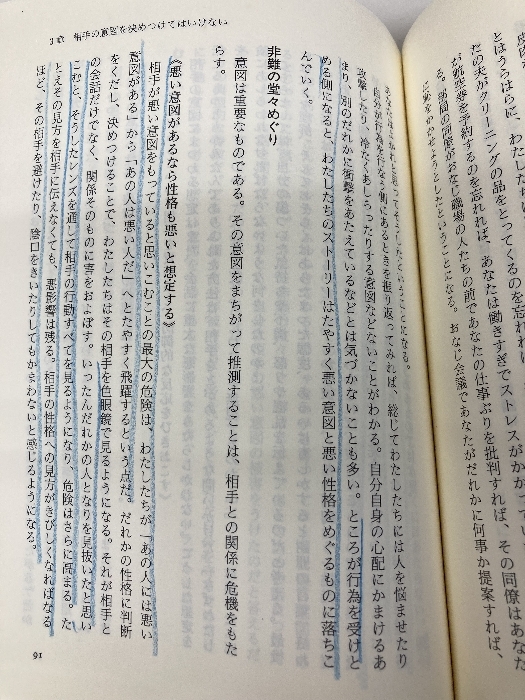 とはうらはらに、わたしたちは
たの夫がクリーニングの品をとってくるのを忘れれば、
が航空券を予約するのを忘れれば、あなたは働きすぎでストレスがかかっ
る。昼間の同僚がおなじ職場の人たちの前であなたの仕事ぶりを批判すれば、その同僚はあなた
おなじ会議であなたがだれかに何事か提案すれば、
自分が行為を行なう側にあるときを振り返ってみれば、総じてわたしたちには人を悩ませたり
攻撃したり、冷たくあしらったりする意図などないことがわかる。自分自身の心配にかまけるあ
まり、別のだれかに衝撃をあたえているなどとは気づかないことも多い。ところが行為を受けと
める側になると、わたしたちのストーリーはたやすく悪い意図と悪い性格をめぐるものに落ちこ
んでいく。
非難の堂々めぐり
意図は重要なものである。その意図をまちがって推測することは、相手との関係に危機をもた
らす。
《悪い意図があるなら性格も悪いと想定する》
相手が悪い意図をもっていると思いこむことの最大の危険は、わたしたちが「あの人には悪い
意図がある」から「あの人は悪い人だ」へとたやすく飛躍するという点だ。だれかの性格に判断
をくだし、決めつけることで、わたしたちはその相手を色眼鏡で見るようになる。それが相手と
の会話だけでなく、関係そのものに害をおよぼす。いったんだれかの人となりを見抜いたと思い
こむと、そうしたレンズを通して相手の行動すべてを見るようになり、危険はさらに高まる。た
とえその見方を相手に伝えなくても、悪影響は残る。相手の性格への見方がきびしくなればなる
ほど、その相手を避けたり、陰口をきいたりしてもかまわないと感じるようになる。
3章 相手の意図を決めつけてはいけない
91